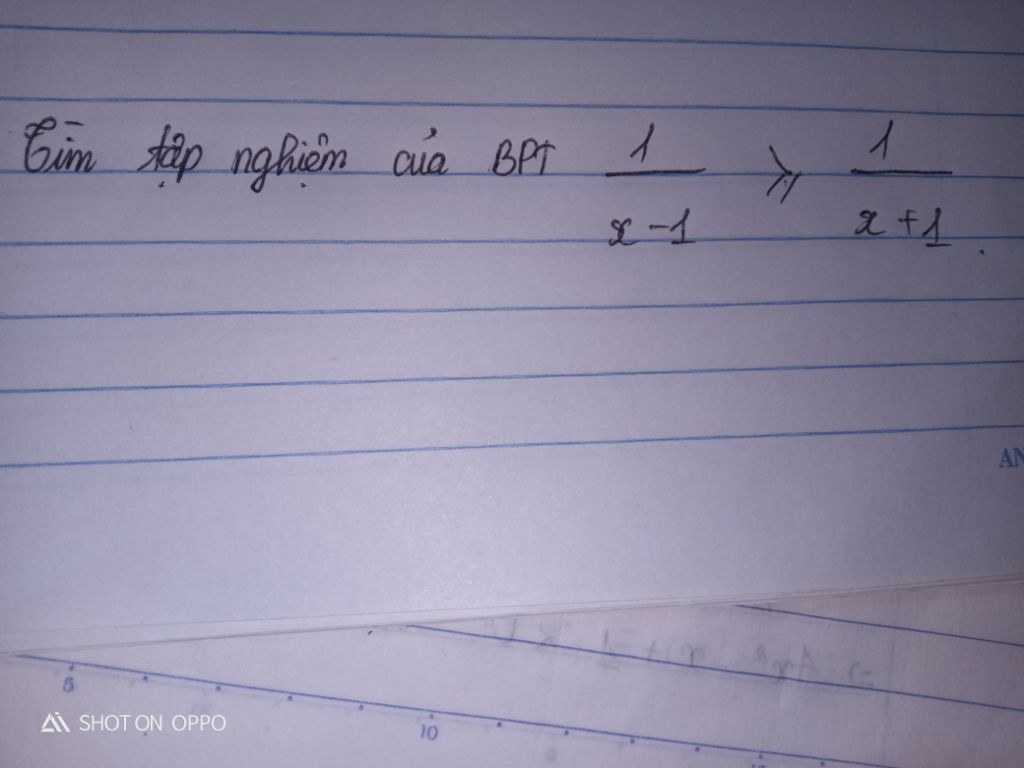 Tìm tập nghiệm của BPT 1/(x-1) ⩾ 1/(x+1).
AN
5
10
SHOT ON OPPO